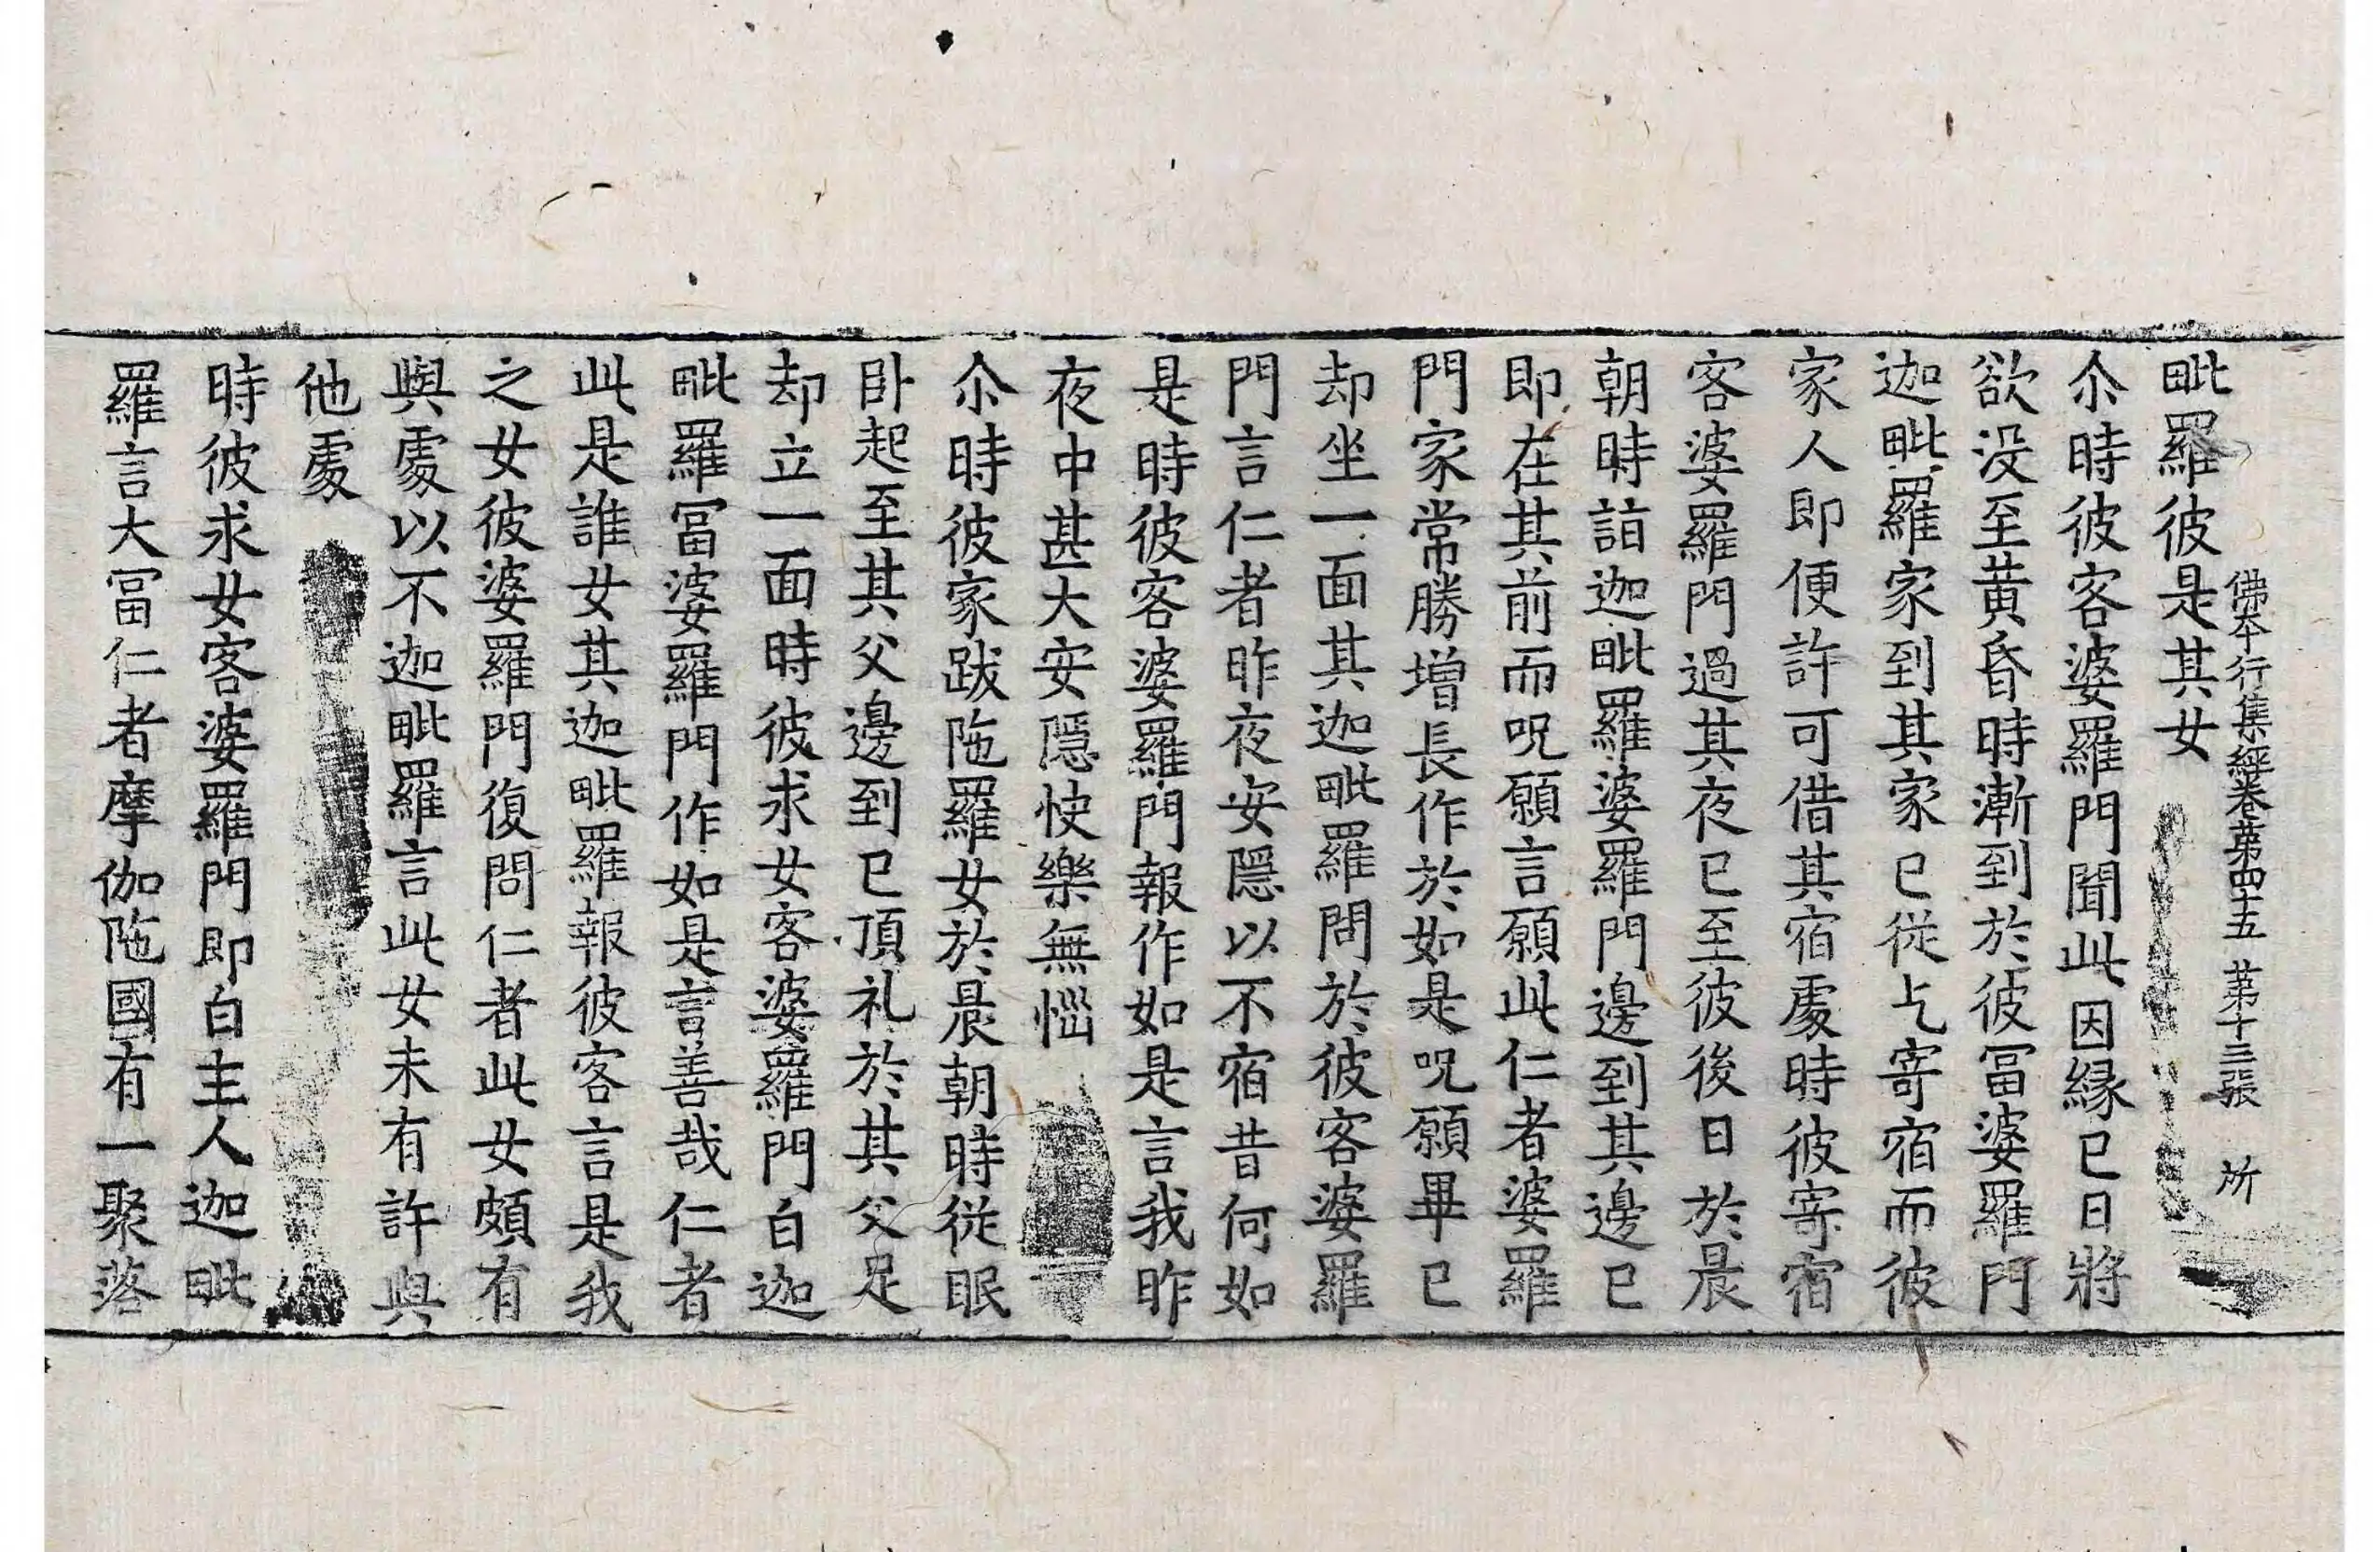 佛本行集經卷苐四十五 苐十三張 所
毗羅彼是其女
尒時彼客婆羅門聞此因緣已日將
欲没至黄昏時漸到於彼冨婆羅門
迦毗羅家到其家已從乞寄宿而彼
家人即便許可借其宿處時彼寄宿
客婆羅門過其夜已至彼後日於晨
朝時詣迦毗羅婆羅門邊到其邊已
即在其前而呪願言願此仁者婆羅
門家常勝增長作於如是呪願畢已
却坐一面其迦毗羅問於彼客婆羅
門言仁者昨夜安隱以不宿昔何如
是時彼客婆羅門報作如是言我昨
夜中甚大安隱快樂無惱
尒時彼家跋陁羅女於晨朝時從眠
卧起至其父邊到已頂礼於其父足
却立一面時彼求女客婆羅門白迦
毗羅冨婆羅門作如是言善哉仁者
此是誰女其迦毗羅報彼客言是我
之女彼婆羅門復問仁者此女頗有
與處以不迦毗羅言此女未有許與
他處
時彼求女客婆羅門即白主人迦毗
羅言大冨仁者摩伽陁國有一聚落